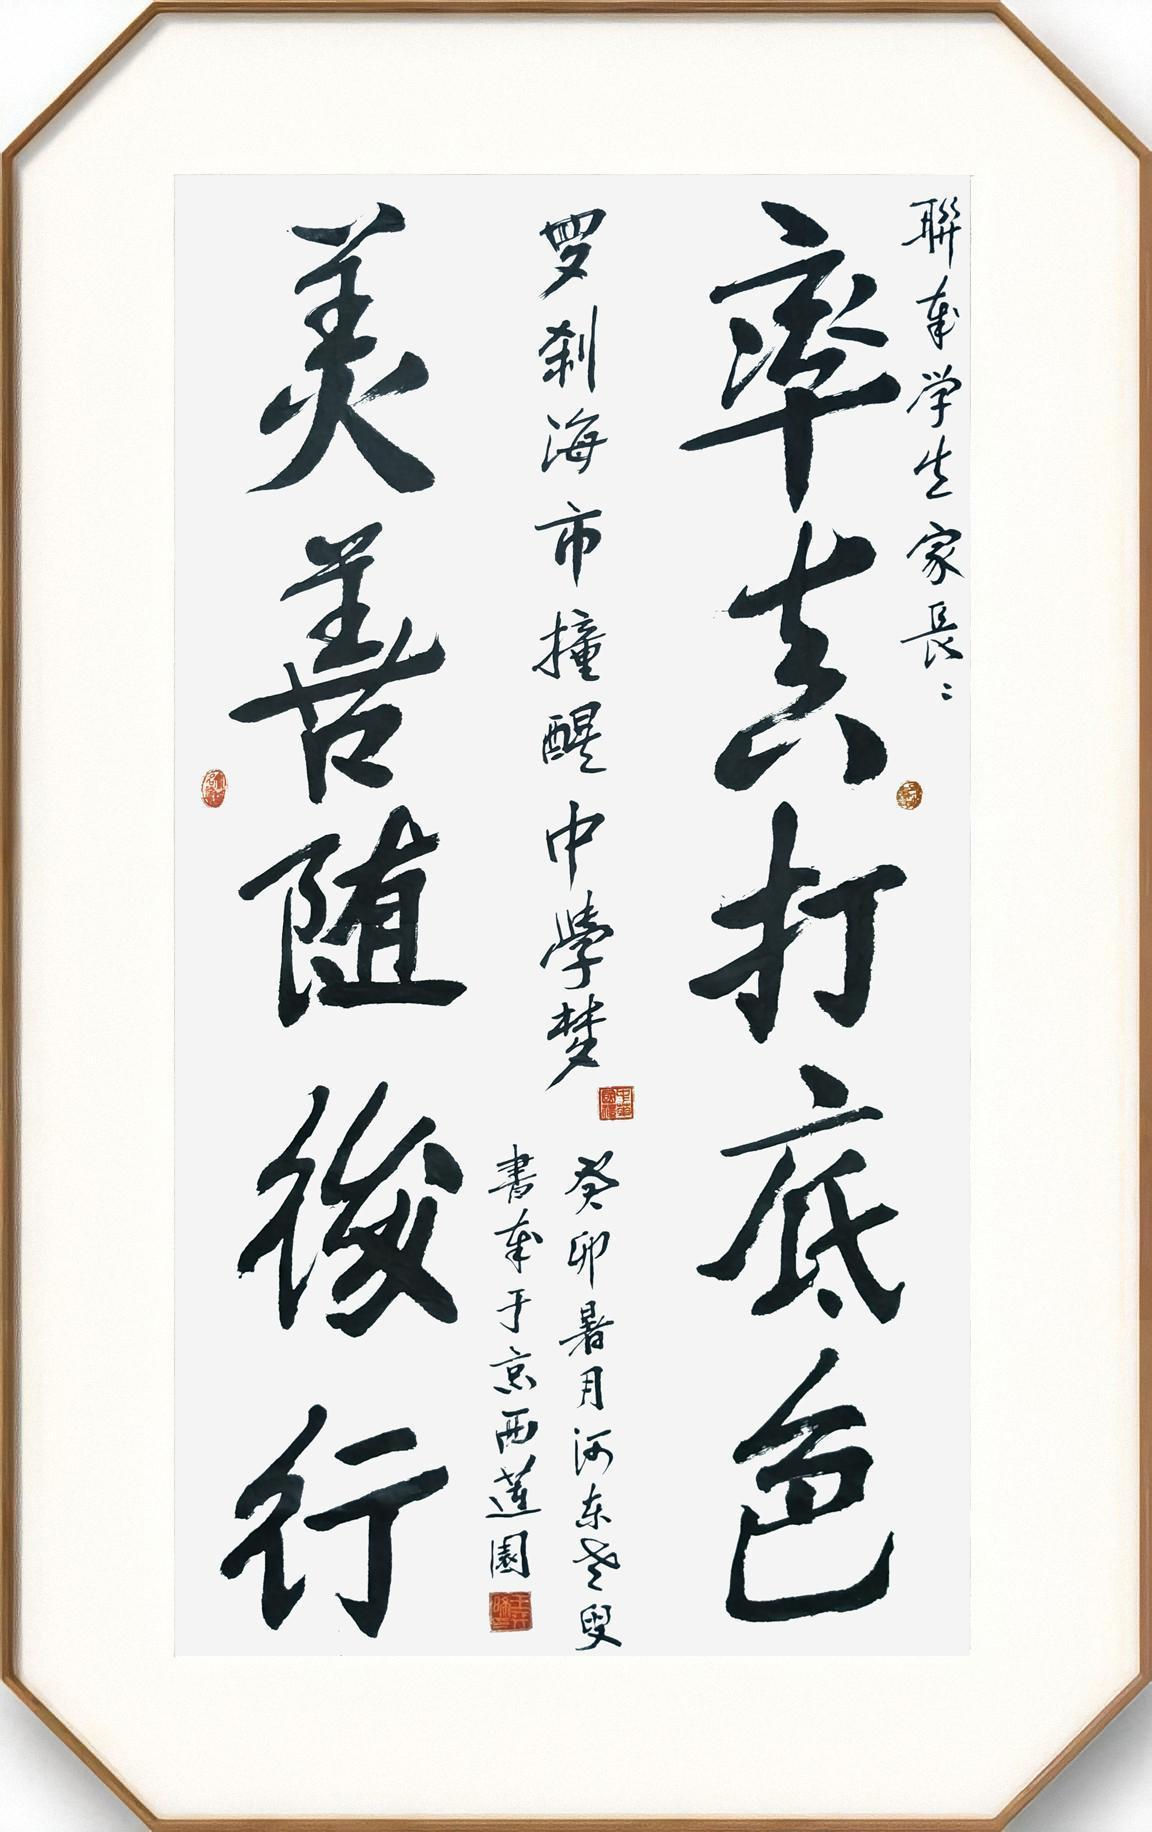 聯奉学生家長〻
率真打底色
罗刹海市撞醒中學梦
癸卯暑月河东老叟
書奉于京西蓮園
美善随後行